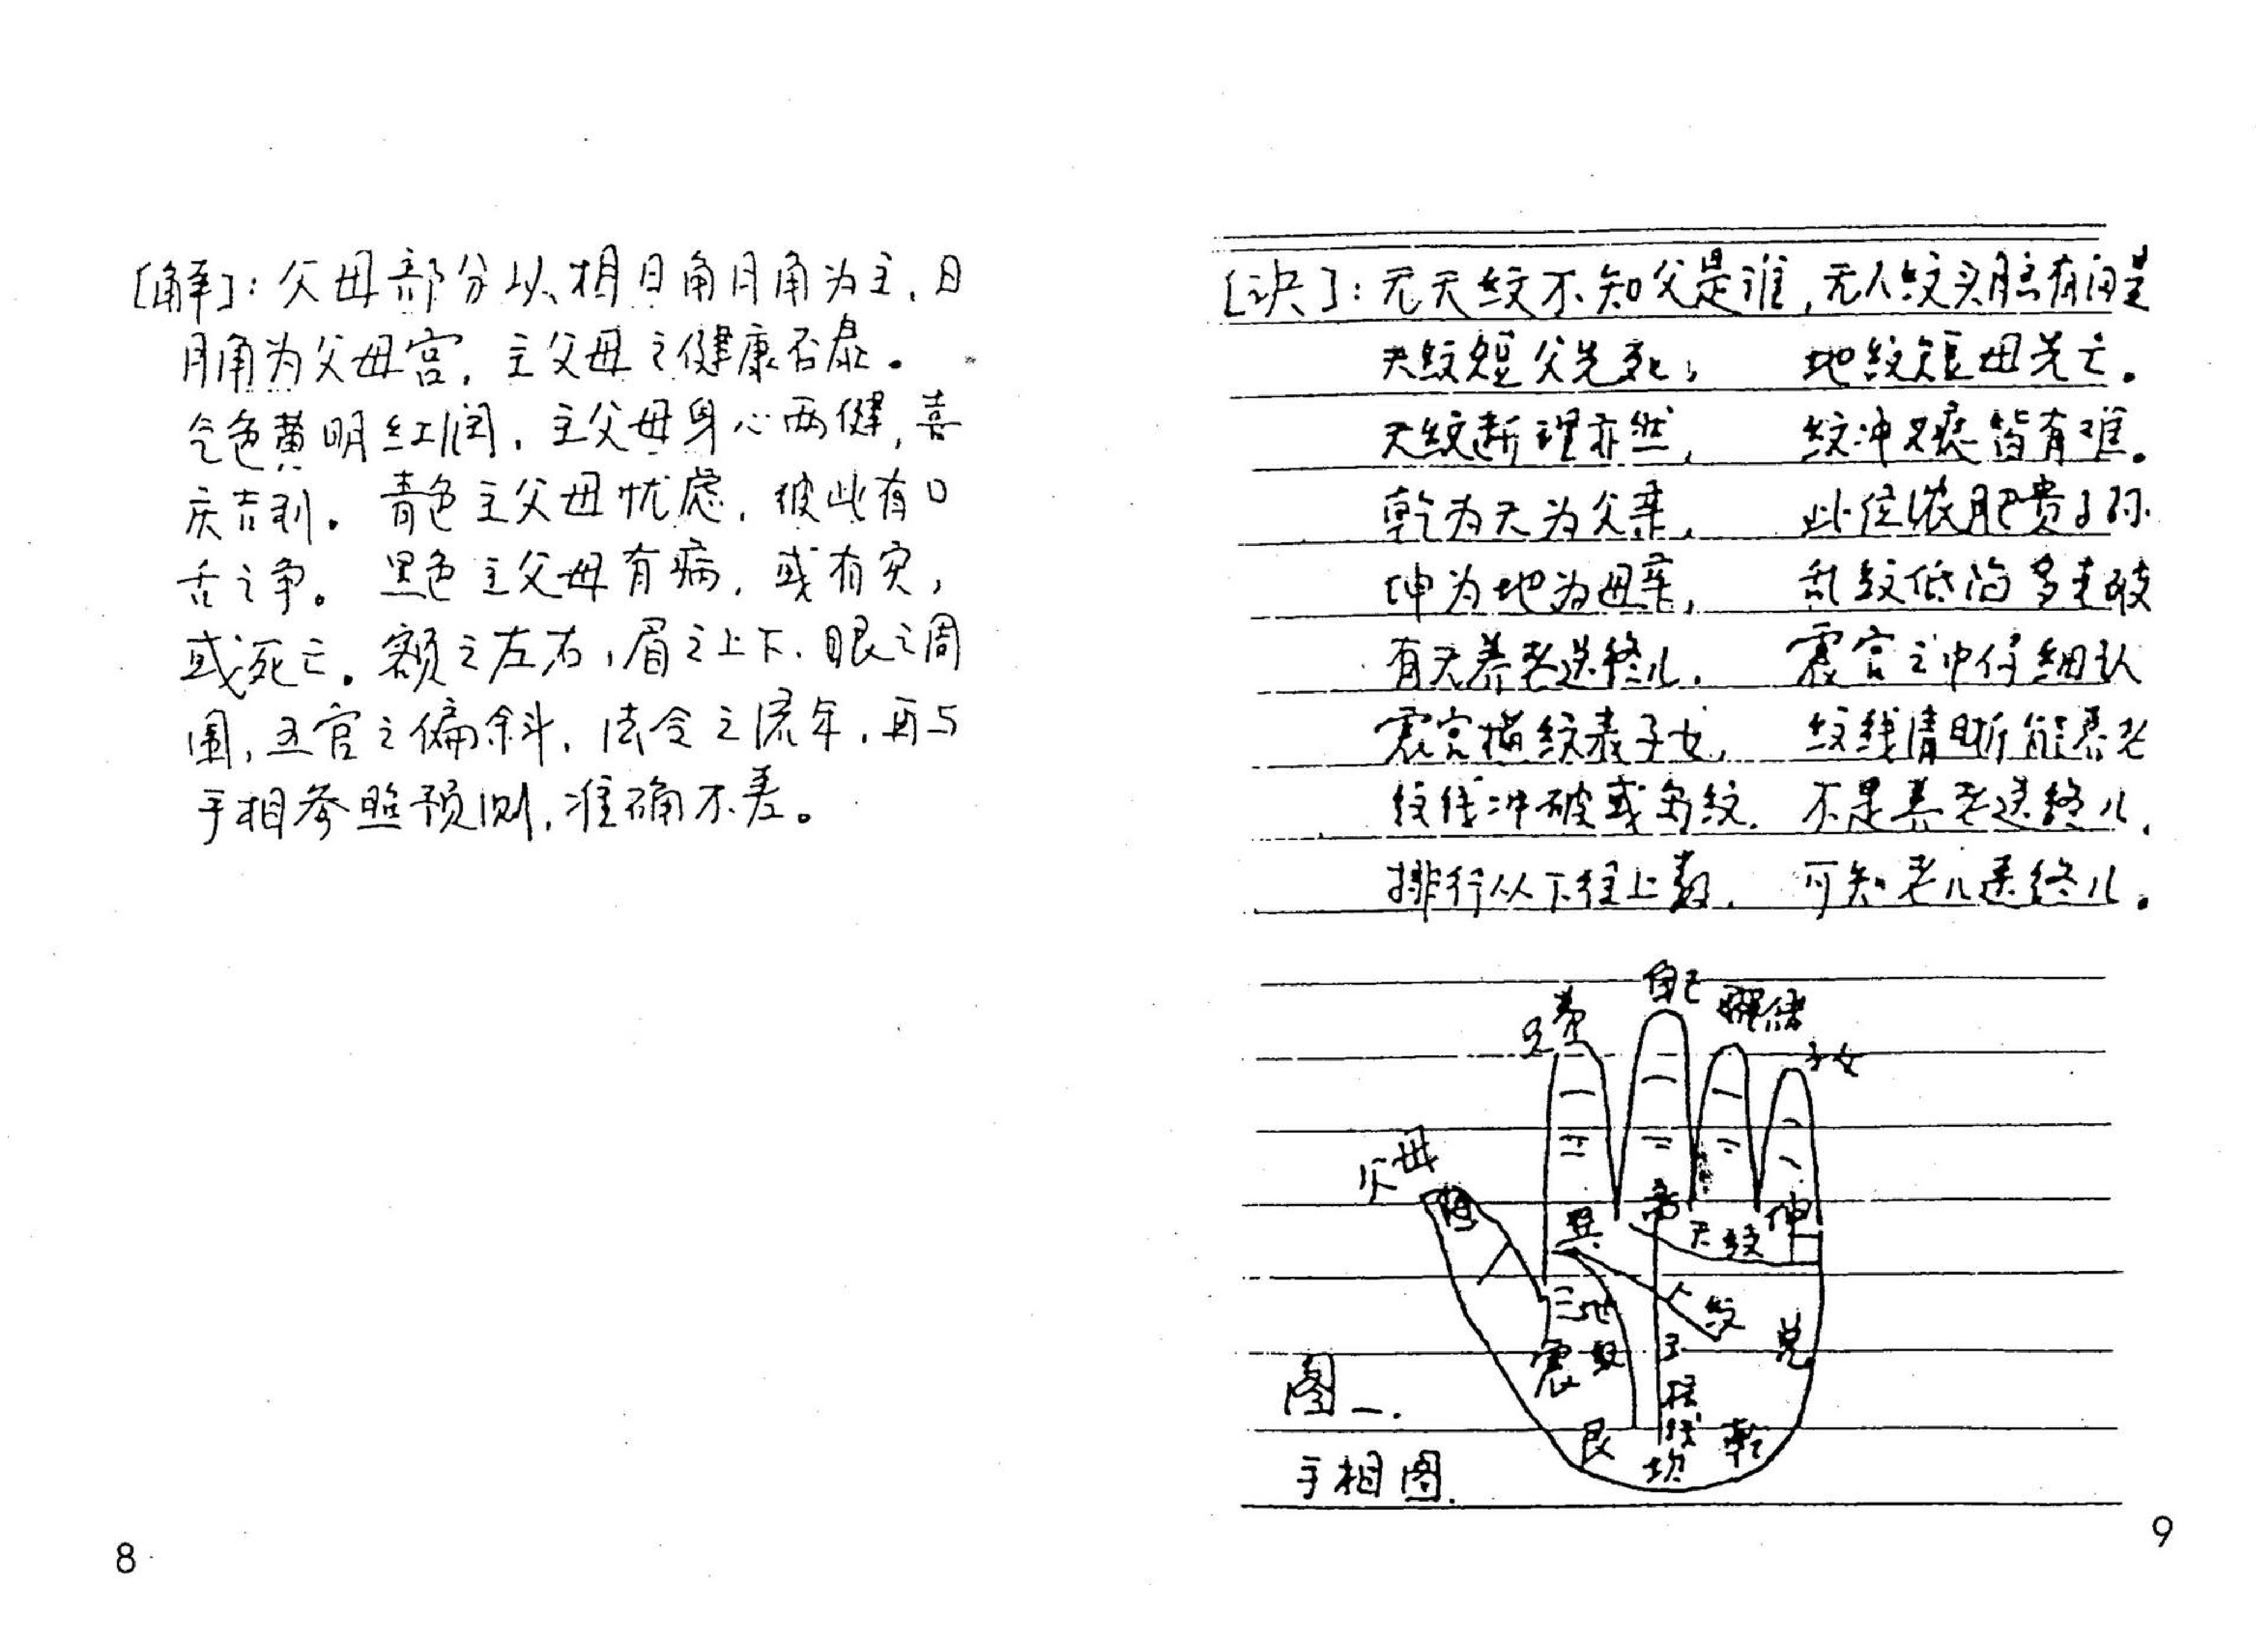 [解]：父母部分以相日角月角为主，日
月角为父母宫，主父母之健康否泰。
气色黄明红润，主父母身心两健，喜
庆吉利。青色主父母忧虑，彼此有口
舌之争。黑色主父母有病，或有灾，
或死亡。额之左右，眉之上下、眼之周
围，五官之偏斜，法令之流年，再与
手相参照预测，准确不差。
8
[决]：无天纹不知父是谁，无人纹头脑有问是
天纹短父先死， 地纹短母先亡。
天纹断理亦然， 纹冲又痣皆有难。
乾为天为父亲， 此位浓肥贵子孙
坤为地为母亲， 乱纹低陷多走破
有无养老送终儿， 震宫之中仔细认
震宫横纹表子女， 纹线清晰能养老
纹线冲破或岛纹， 不是养老送终儿，
排行从下往上数， 可知老儿送终儿。
自己
子女
父母
巽
天纹
坤
人纹
地纹
震
兑
艮
坎
乾
图一.
手相图.
9